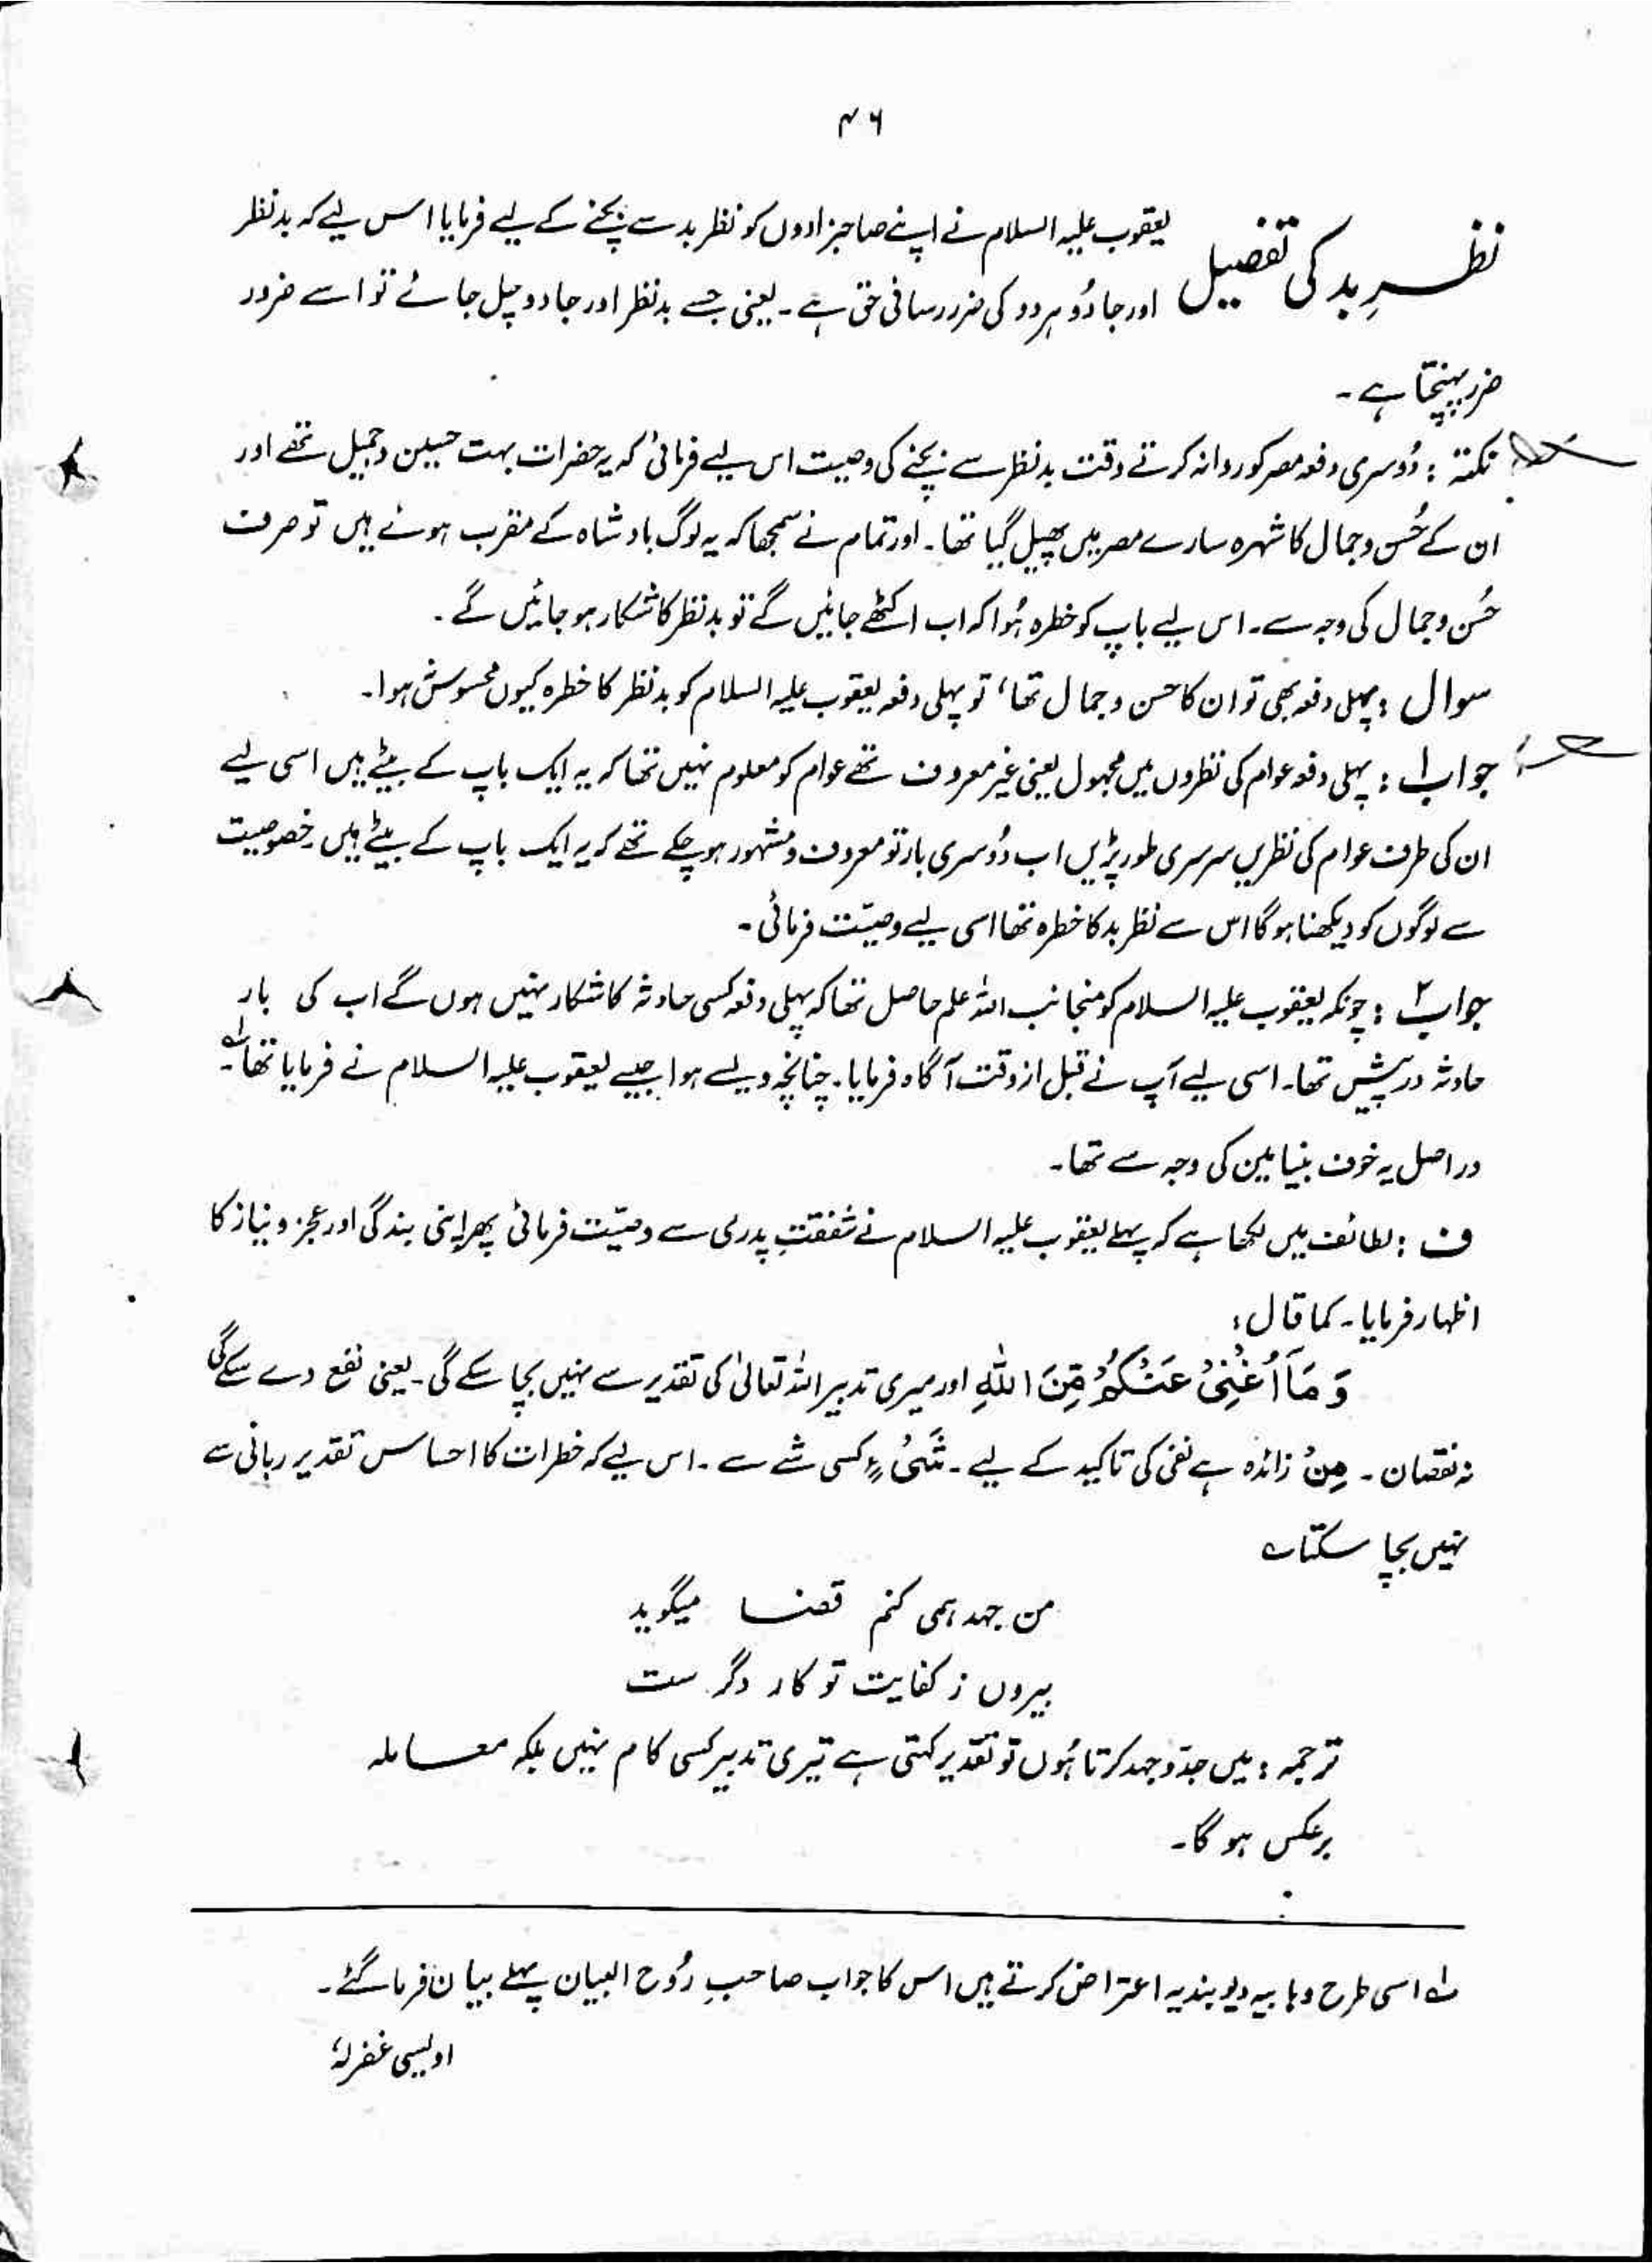 ۴۶
نظرِ بد کی تفصیل
یعقوب علیہ السلام نے اپنے صاحبزادوں کو نظر بد سے بچنے کے لیے فرمایا اس لیے کہ بدنظر
اور جادُو ہر دو کی ضرر رسانی حق ہے ۔ یعنی جسے بدنظر اور جادو چل جائے تو اسے ضرور
ضرر پہنچتا ہے ۔
نکتہ : دُوسری دفعہ مصر کو روانہ کرتے وقت بدنظر سے بچنے کی وصیت اس لیے فرمائی کہ یہ حضرات بہت حسین و جمیل تھے اور
ان کے حُسن و جمال کا شہرہ سارے مصر میں پھیل گیا تھا ۔ اور تمام نے سمجھا کہ یہ لوگ بادشاہ کے مقرب ہوئے ہیں تو صرف
حُسن و جمال کی وجہ سے ۔ اس لیے باپ کو خطرہ ہُوا کہ اب اکٹھے جائیں گے تو بدنظر کا شکار ہو جائیں گے ۔
سوال : پہلی دفعہ بھی تو ان کا حسن و جمال تھا ، تو پہلی دفعہ یعقوب علیہ السلام کو بدنظر کا خطرہ کیوں محسوس نہ ہوا ۔
جواب ۱ : پہلی دفعہ عوام کی نظروں میں مجہول یعنی غیر معروف تھے عوام کو معلوم نہیں تھا کہ یہ ایک باپ کے بیٹے ہیں اسی لیے
ان کی طرف عوام کی نظریں سرسری طور پڑیں اب دُوسری بار تو معروف و مشہور ہو چکے تھے کہ یہ ایک باپ کے بیٹے ہیں خصوصیت
سے لوگوں کو دیکھنا ہوگا اس سے نظر بد کا خطرہ تھا اسی لیے وصیّت فرمائی ۔
جواب ۲ : چونکہ یعقوب علیہ السلام کو منجانب اللہ علم حاصل تھا کہ پہلی دفعہ کسی حادثہ کا شکار نہیں ہوں گے اب کی بار
حادثہ درپیش تھا ۔ اسی لیے آپ نے قبل از وقت آگاہ فرمایا ۔ چنانچہ ویسے ہوا جیسے یعقوب علیہ السلام نے فرمایا تھا ۔ لہ
دراصل یہ خوف بنیامین کی وجہ سے تھا ۔
ف : لطائف میں لکھا ہے کہ پہلے یعقوب علیہ السلام نے شفقتِ پدری سے وصیّت فرمائی پھر اپنی بندگی اور عجز و نیاز کا
اظہار فرمایا ۔ کما قال :
وَمَآ اُغْنِیْ عَنْکُمْ مِّنَ اللّٰہِ اور میری تدبیر اللہ تعالیٰ کی تقدیر سے نہیں بچا سکے گی ۔ یعنی نفع دے سکے گی
نہ نقصان ۔ مِنْ زائدہ ہے نفی کی تاکید کے لیے ۔ شَیْءٍ کسی شے سے ۔ اس لیے کہ خطرات کا احساس تقدیر ربانی سے
نہیں بچا سکتا ے
من جہد ہمی کنم قضا میگوید
بیروں ز کفایت تو کار دگر ست
ترجمہ : میں جدّ و جہد کرتا ہُوں تو تقدیر کہتی ہے تیری تدبیر کسی کام نہیں بلکہ معاملہ
برعکس ہو گا ۔
لہ اسی طرح وہابیہ دیوبندیہ اعتراض کرتے ہیں اس کا جواب صاحبِ رُوح البیان پہلے بیان فرما گئے ۔
اویسی غفرلہٗ